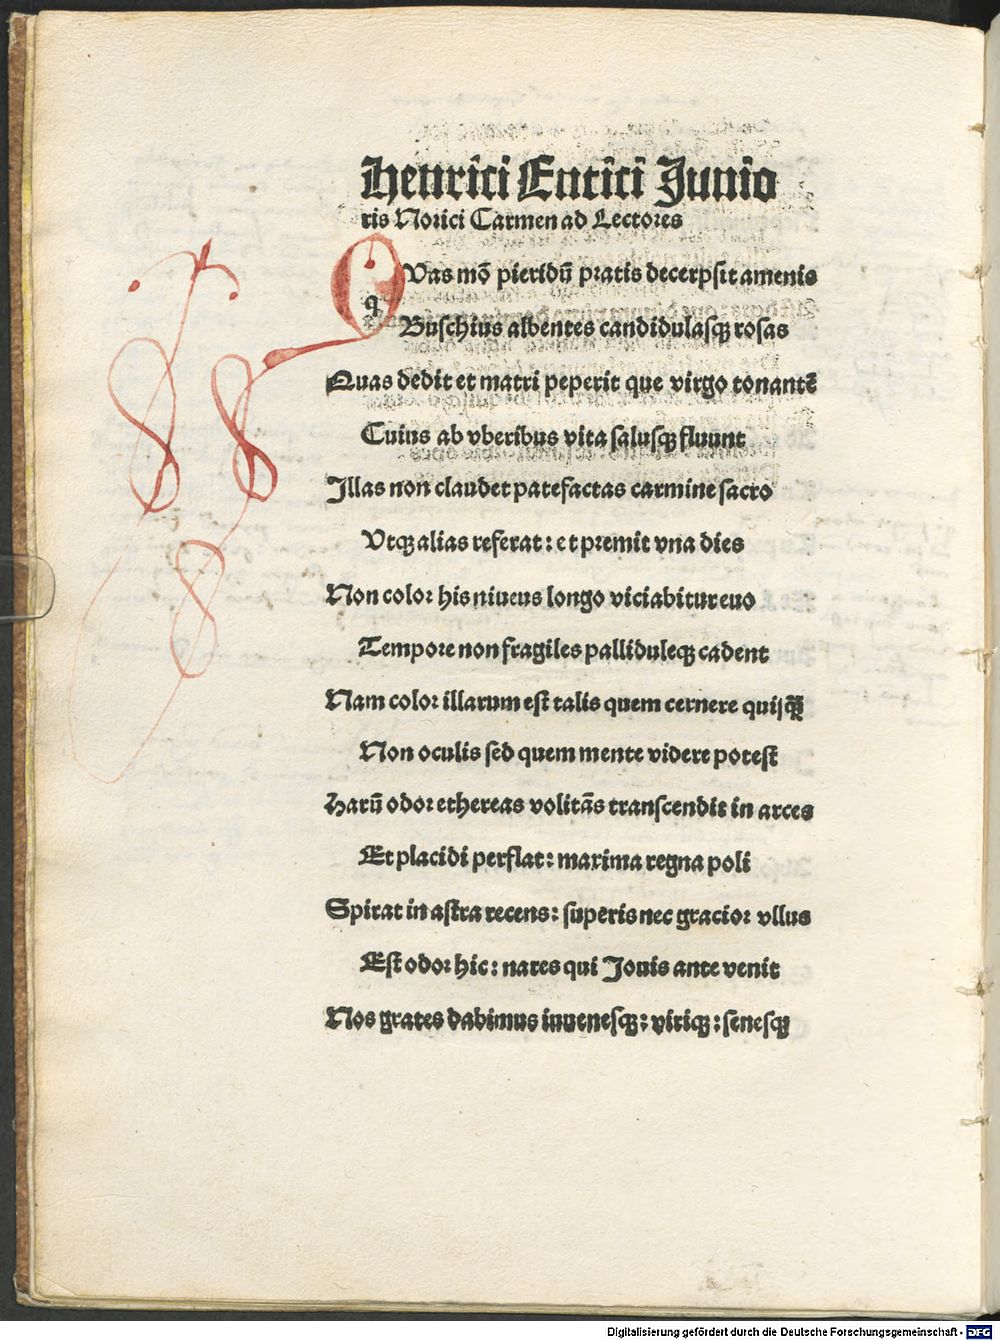 Henrici Entici Junio
ris Norici Carmen ad Lectores
QVas mō pieridū pratis decerpsit amenis
q
Buschius albentes candidulasqꝫ rosas
Quas dedit et matri peperit que virgo tonantē
Cuius ab vberibus vita salusqꝫ fluunt
Illas non claudet patefactas carmine sacro
Vtqꝫ alias referat: et premit vna dies
Non color his niueus longo viciabitur euo
Tempore non fragiles palliduleqꝫ cadent
Nam color illarum est talis quem cernere quisqꝫ̄
Non oculis sed quem mente videre potest
Harū odor ethereas volitās transcendit in arces
Et placidi perflat: maxima regna poli
Spirat in astra recens: superis nec gracior vllus
Est odor hic: nares qui Jouis ante venit
Nos grates dabimus iuuenesqꝫ: viriqꝫ: senesqꝫ
Digitalisierung gefördert durch die Deutsche Forschungsgemeinschaft - DFG